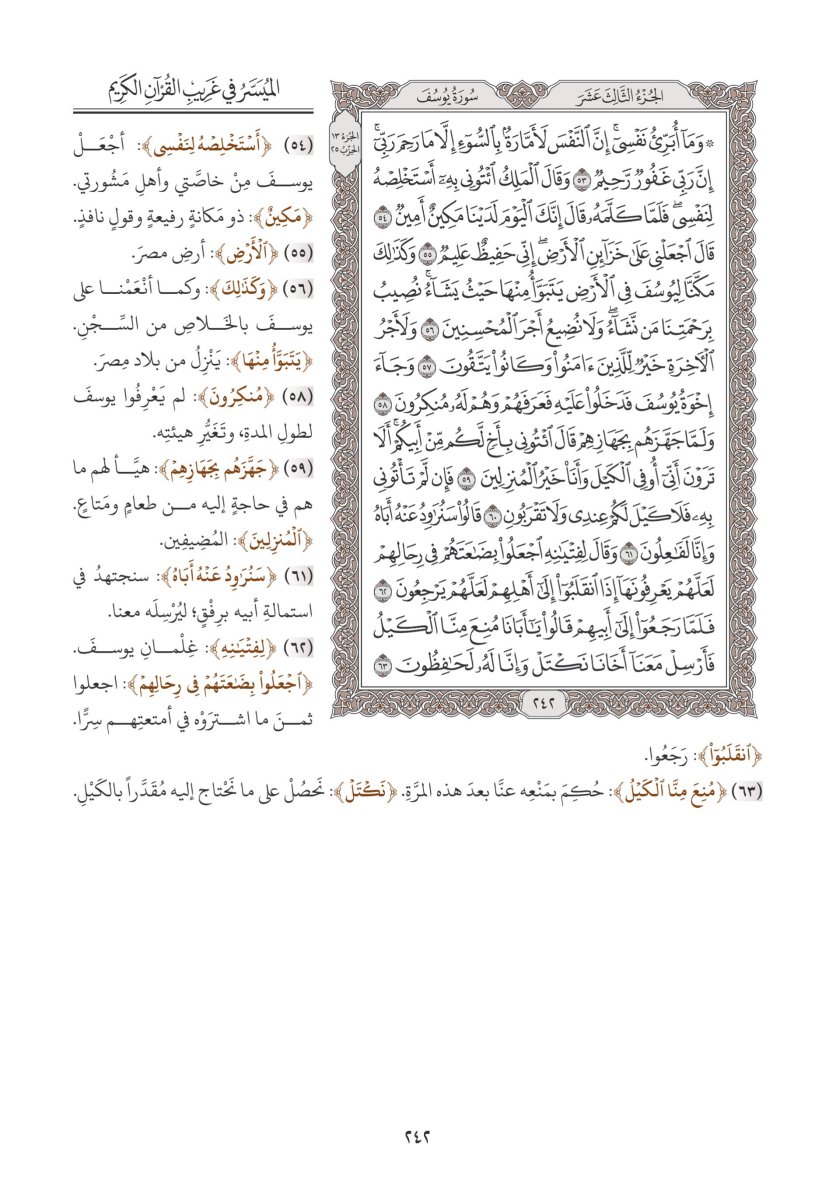 الميَسَّرُ في غَرِيبِ القُرْآنِ الكَرِيم
الجُزْءُ الثَّالِثَ عَشَرَ
سُورَةُ يُوسُفَ
الجزء ١٣
الحزب ٢٥
۞ وَمَآ أُبَرِّئُ نَفْسِىٓۚ إِنَّ ٱلنَّفْسَ لَأَمَّارَةُۢ بِٱلسُّوٓءِ إِلَّا مَا رَحِمَ رَبِّىٓۚ
إِنَّ رَبِّى غَفُورٌ رَّحِيمٌ ٥٣ وَقَالَ ٱلْمَلِكُ ٱئْتُونِى بِهِۦٓ أَسْتَخْلِصْهُ
لِنَفْسِىۖ فَلَمَّا كَلَّمَهُۥ قَالَ إِنَّكَ ٱلْيَوْمَ لَدَيْنَا مَكِينٌ أَمِينٌ ٥٤
قَالَ ٱجْعَلْنِى عَلَىٰ خَزَآئِنِ ٱلْأَرْضِۖ إِنِّى حَفِيظٌ عَلِيمٌ ٥٥ وَكَذَٰلِكَ
مَكَّنَّا لِيُوسُفَ فِى ٱلْأَرْضِ يَتَبَوَّأُ مِنْهَا حَيْثُ يَشَآءُۚ نُصِيبُ
بِرَحْمَتِنَا مَن نَّشَآءُۖ وَلَا نُضِيعُ أَجْرَ ٱلْمُحْسِنِينَ ٥٦ وَلَأَجْرُ
ٱلْأَخِرَةِ خَيْرٌ لِّلَّذِينَ ءَامَنُوا۟ وَكَانُوا۟ يَتَّقُونَ ٥٧ وَجَآءَ
إِخْوَةُ يُوسُفَ فَدَخَلُوا۟ عَلَيْهِ فَعَرَفَهُمْ وَهُمْ لَهُۥ مُنكِرُونَ ٥٨
وَلَمَّا جَهَّزَهُم بِجَهَازِهِمْ قَالَ ٱئْتُونِى بِأَخٍ لَّكُم مِّنْ أَبِيكُمْۚ أَلَا
تَرَوْنَ أَنِّىٓ أُوفِى ٱلْكَيْلَ وَأَنَا۠ خَيْرُ ٱلْمُنزِلِينَ ٥٩ فَإِن لَّمْ تَأْتُونِى
بِهِۦ فَلَا كَيْلَ لَكُمْ عِندِى وَلَا تَقْرَبُونِ ٦٠ قَالُوا۟ سَنُرَٰوِدُ عَنْهُ أَبَاهُ
وَإِنَّا لَفَٰعِلُونَ ٦١ وَقَالَ لِفِتْيَٰنِهِ ٱجْعَلُوا۟ بِضَٰعَتَهُمْ فِى رِحَالِهِمْ
لَعَلَّهُمْ يَعْرِفُونَهَآ إِذَا ٱنقَلَبُوٓا۟ إِلَىٰٓ أَهْلِهِمْ لَعَلَّهُمْ يَرْجِعُونَ ٦٢
فَلَمَّا رَجَعُوٓا۟ إِلَىٰٓ أَبِيهِمْ قَالُوا۟ يَٰٓأَبَانَا مُنِعَ مِنَّا ٱلْكَيْلُ
فَأَرْسِلْ مَعَنَآ أَخَانَا نَكْتَلْ وَإِنَّا لَهُۥ لَحَٰفِظُونَ ٦٣
٢٤٢
(٥٤) ﴿أَسْتَخْلِصْهُ لِنَفْسِى﴾: أجْعَـلْ
يوسـفَ مِنْ خاصَّتي وأهلِ مَشُورتي.
﴿مَكِينٌ﴾: ذو مَكانةٍ رفيعةٍ وقولٍ نافذٍ.
(٥٥) ﴿ٱلْأَرْضِ﴾: أرضِ مصرَ.
(٥٦) ﴿وَكَذَٰلِكَ﴾: وكمـا أنْعَمْنـا على
يوسـفَ بالخَـلاصِ من السِّـجْنِ.
﴿يَتَبَوَّأُ مِنْهَا﴾: يَنْزِلُ من بلاد مِصرَ.
(٥٨) ﴿مُنكِرُونَ﴾: لم يَعْرِفُوا يوسفَ
لطولِ المدةِ، وتَغَيُّرِ هيئتِه.
(٥٩) ﴿جَهَّزَهُم بِجَهَازِهِمْ﴾: هيَّـأ لهم ما
هم في حاجةٍ إليه مـن طعامٍ ومَتاعٍ.
﴿ٱلْمُنزِلِينَ﴾: المُضِيفِين.
(٦١) ﴿سَنُرَٰوِدُ عَنْهُ أَبَاهُ﴾: سنجتهدُ في
استمالةِ أبيه برِفْقٍ؛ ليُرْسِلَه معنا.
(٦٢) ﴿لِفِتْيَٰنِهِ﴾: غِلْمـانِ يوسـفَ.
﴿ٱجْعَلُوا۟ بِضَٰعَتَهُمْ فِى رِحَالِهِمْ﴾: اجعلوا
ثمـنَ ما اشـترَوْه في أمتعتِهـم سِرًّا.
﴿ٱنقَلَبُوٓا۟﴾: رَجَعُوا.
(٦٣) ﴿مُنِعَ مِنَّا ٱلْكَيْلُ﴾: حُكِمَ بمَنْعِه عنَّا بعدَ هذه المرَّةِ. ﴿نَكْتَلْ﴾: نَحصُلْ على ما نَحْتاج إليه مُقَدَّراً بالكَيْلِ.
٢٤٢